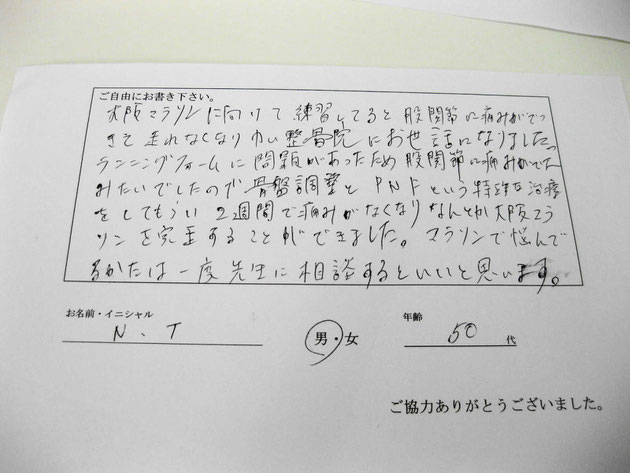 ご自由にお書き下さい。
大阪マラソンに向けて練習してると股関節に痛みがでて
きて走れなくなりゆい整骨院にお世話になりました。
ランニングフォームに問題があったため股関節に痛みがでた
みたいでしたので骨盤調整とPNFという特殊な治療
をしてもらい2週間で痛みがなくなりなんとか大阪マラ
ソンを完走することができました。マラソンで悩んで
るかたは一度先生に相談するといいと思います。
お名前・イニシャル
N.T
男・女
年齢
50代
ご協力ありがとうございました。